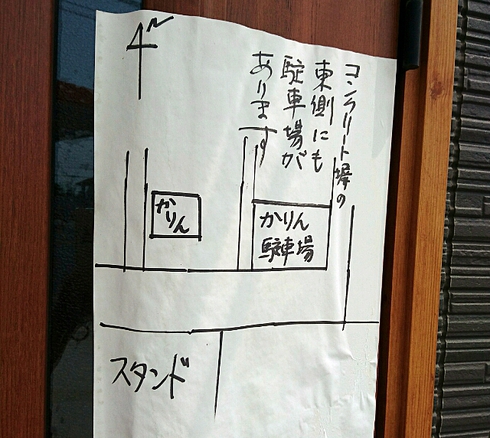 N
コンクリート塀の
東側にも
駐車場が
あります
かりん
かりん
駐車場
スタンド